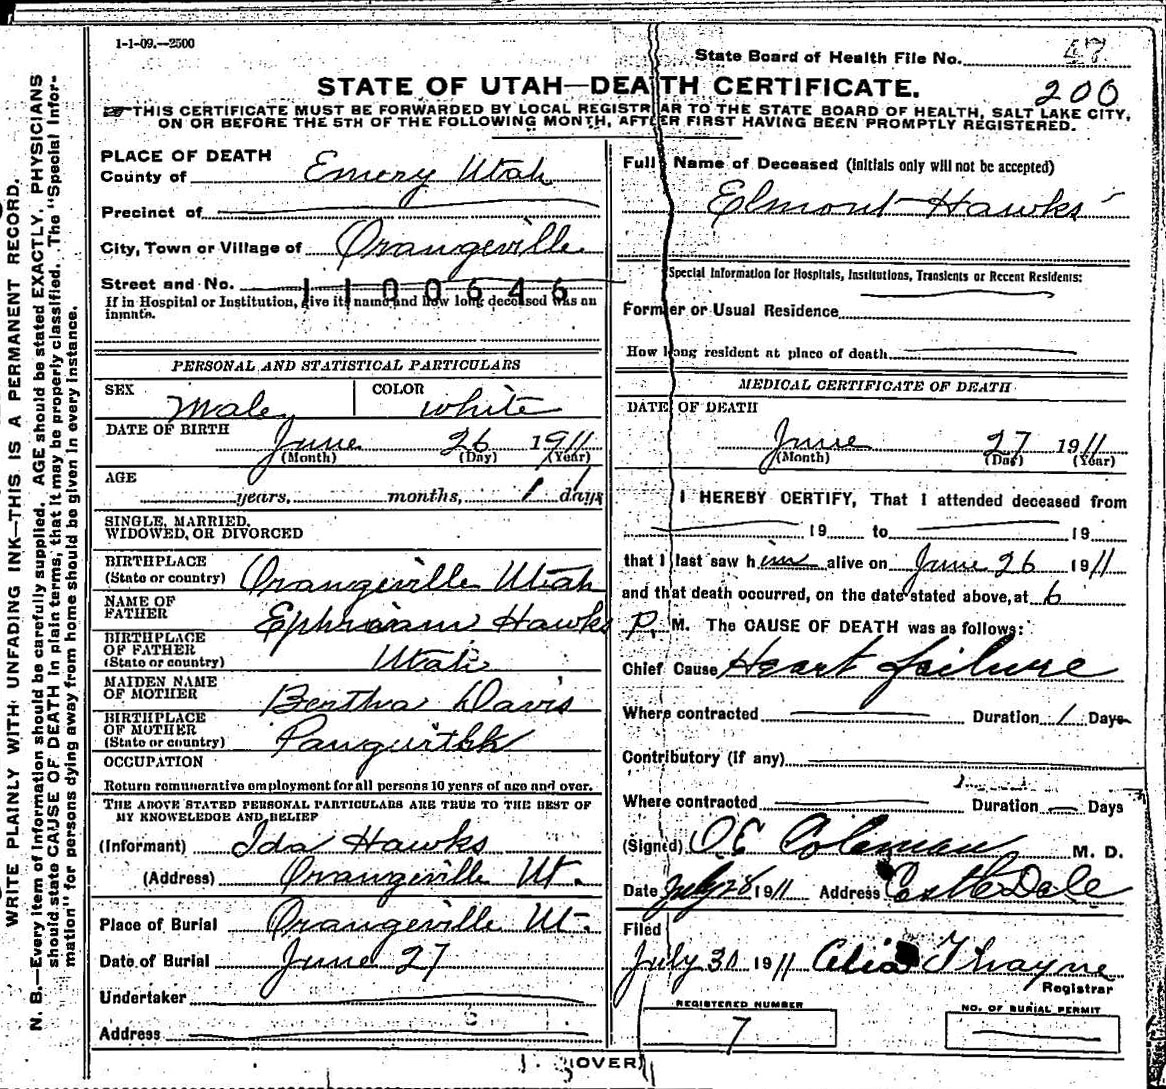 1-1-09.—2500
State Board of Health File No. 47
STATE OF UTAH—DEATH CERTIFICATE.
200
THIS CERTIFICATE MUST BE FORWARDED BY LOCAL REGISTRAR TO THE STATE BOARD OF HEALTH, SALT LAKE CITY,
ON OR BEFORE THE 5TH OF THE FOLLOWING MONTH, AFTER FIRST HAVING BEEN PROMPTLY REGISTERED.
WRITE PLAINLY WITH UNFADING INK—THIS IS A PERMANENT RECORD.
N. B.—Every item of information should be carefully supplied. AGE should be stated EXACTLY. PHYSICIANS
should state CAUSE OF DEATH in plain terms, that it may be properly classified. The "Special Infor-
mation" for persons dying away from home should be given in every instance.
PLACE OF DEATH
County of Emery Utah
Precinct of
City, Town or Village of Orangeville
Street and No.
1100646
If in Hospital or Institution, give its name and how long deceased was an
inmate.
PERSONAL AND STATISTICAL PARTICULARS
SEX Male COLOR white
DATE OF BIRTH
June 26 1911
(Month) (Day) (Year)
AGE
years, months, 1 days
SINGLE, MARRIED,
WIDOWED, OR DIVORCED
BIRTHPLACE
(State or country) Orangeville Utah
NAME OF
FATHER Ephraim Hawks
BIRTHPLACE
OF FATHER
(State or country) Utah
MAIDEN NAME
OF MOTHER Bertha Davis
BIRTHPLACE
OF MOTHER
(State or country)
OCCUPATION
Return remunerative employment for all persons 10 years of age and over.
THE ABOVE STATED PERSONAL PARTICULARS ARE TRUE TO THE BEST OF
MY KNOWELEDGE AND BELIEF
(Informant) Ida Hawks
(Address) Orangeville Ut.
Place of Burial Orangeville Ut.
Date of Burial June 27
Undertaker
Address
Full Name of Deceased (Initials only will not be accepted)
Elmont Hawks
Special Information for Hospitals, Institutions, Transients or Recent Residents:
Former or Usual Residence
How long resident at place of death
MEDICAL CERTIFICATE OF DEATH
DATE OF DEATH
June 27 1911
(Month) (Day) (Year)
I HEREBY CERTIFY, That I attended deceased from
19 to 19
that I last saw him alive on June 26 1911
and that death occurred, on the date stated above, at 6
P. M. The CAUSE OF DEATH was as follows:
Chief Cause Heart failure
Where contracted Duration 1 Days
Contributory (if any)
Where contracted Duration — Days
(Signed) O E Coleman M. D.
Date July 28 1911 Address Castle Dale
Filed
July 30 1911 Celia Thayne
Registrar
REGISTERED NUMBER
7
NO. OF BURIAL PERMIT
(OVER)